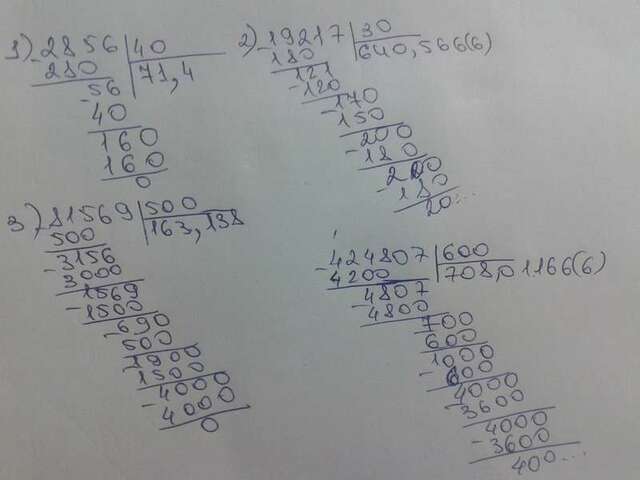 1) -2856 | 40
280 | 71,4
-56
40
160
160
0
2) -19217 | 30
180 | 640,566(6)
121
-120
170
-150
200
-180
200
-180
20...
3) -81569 | 500
500 | 163,138
-3156
3000
1569
-1500
-690
500
1900
-1500
4000
-4000
0
-424807 | 600
4200 | 708,01166(6)
-4807
4800
700
600
1000
-600
4000
-3600
4000
-3600
400...